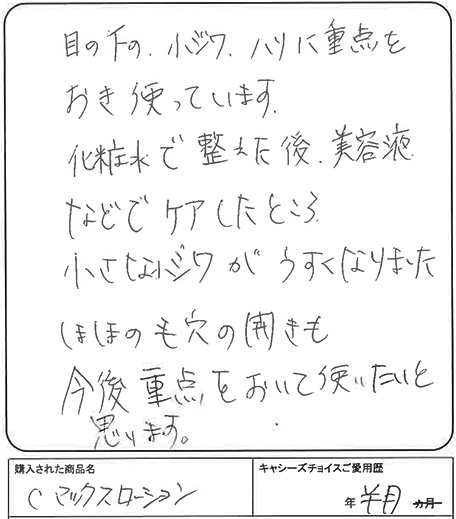 目の下の、小ジワ、ハリに重点を
おき使っています。
化粧水で整えた後、美容液
などでケアしたところ、
小さな小ジワがうすくなりました
ほほの毛穴の開きも
今後重点をおいて使いたいと
思います。
購入された商品名
Cマックスローション
キャシーズチョイスご愛用歴
年 半月 カ月